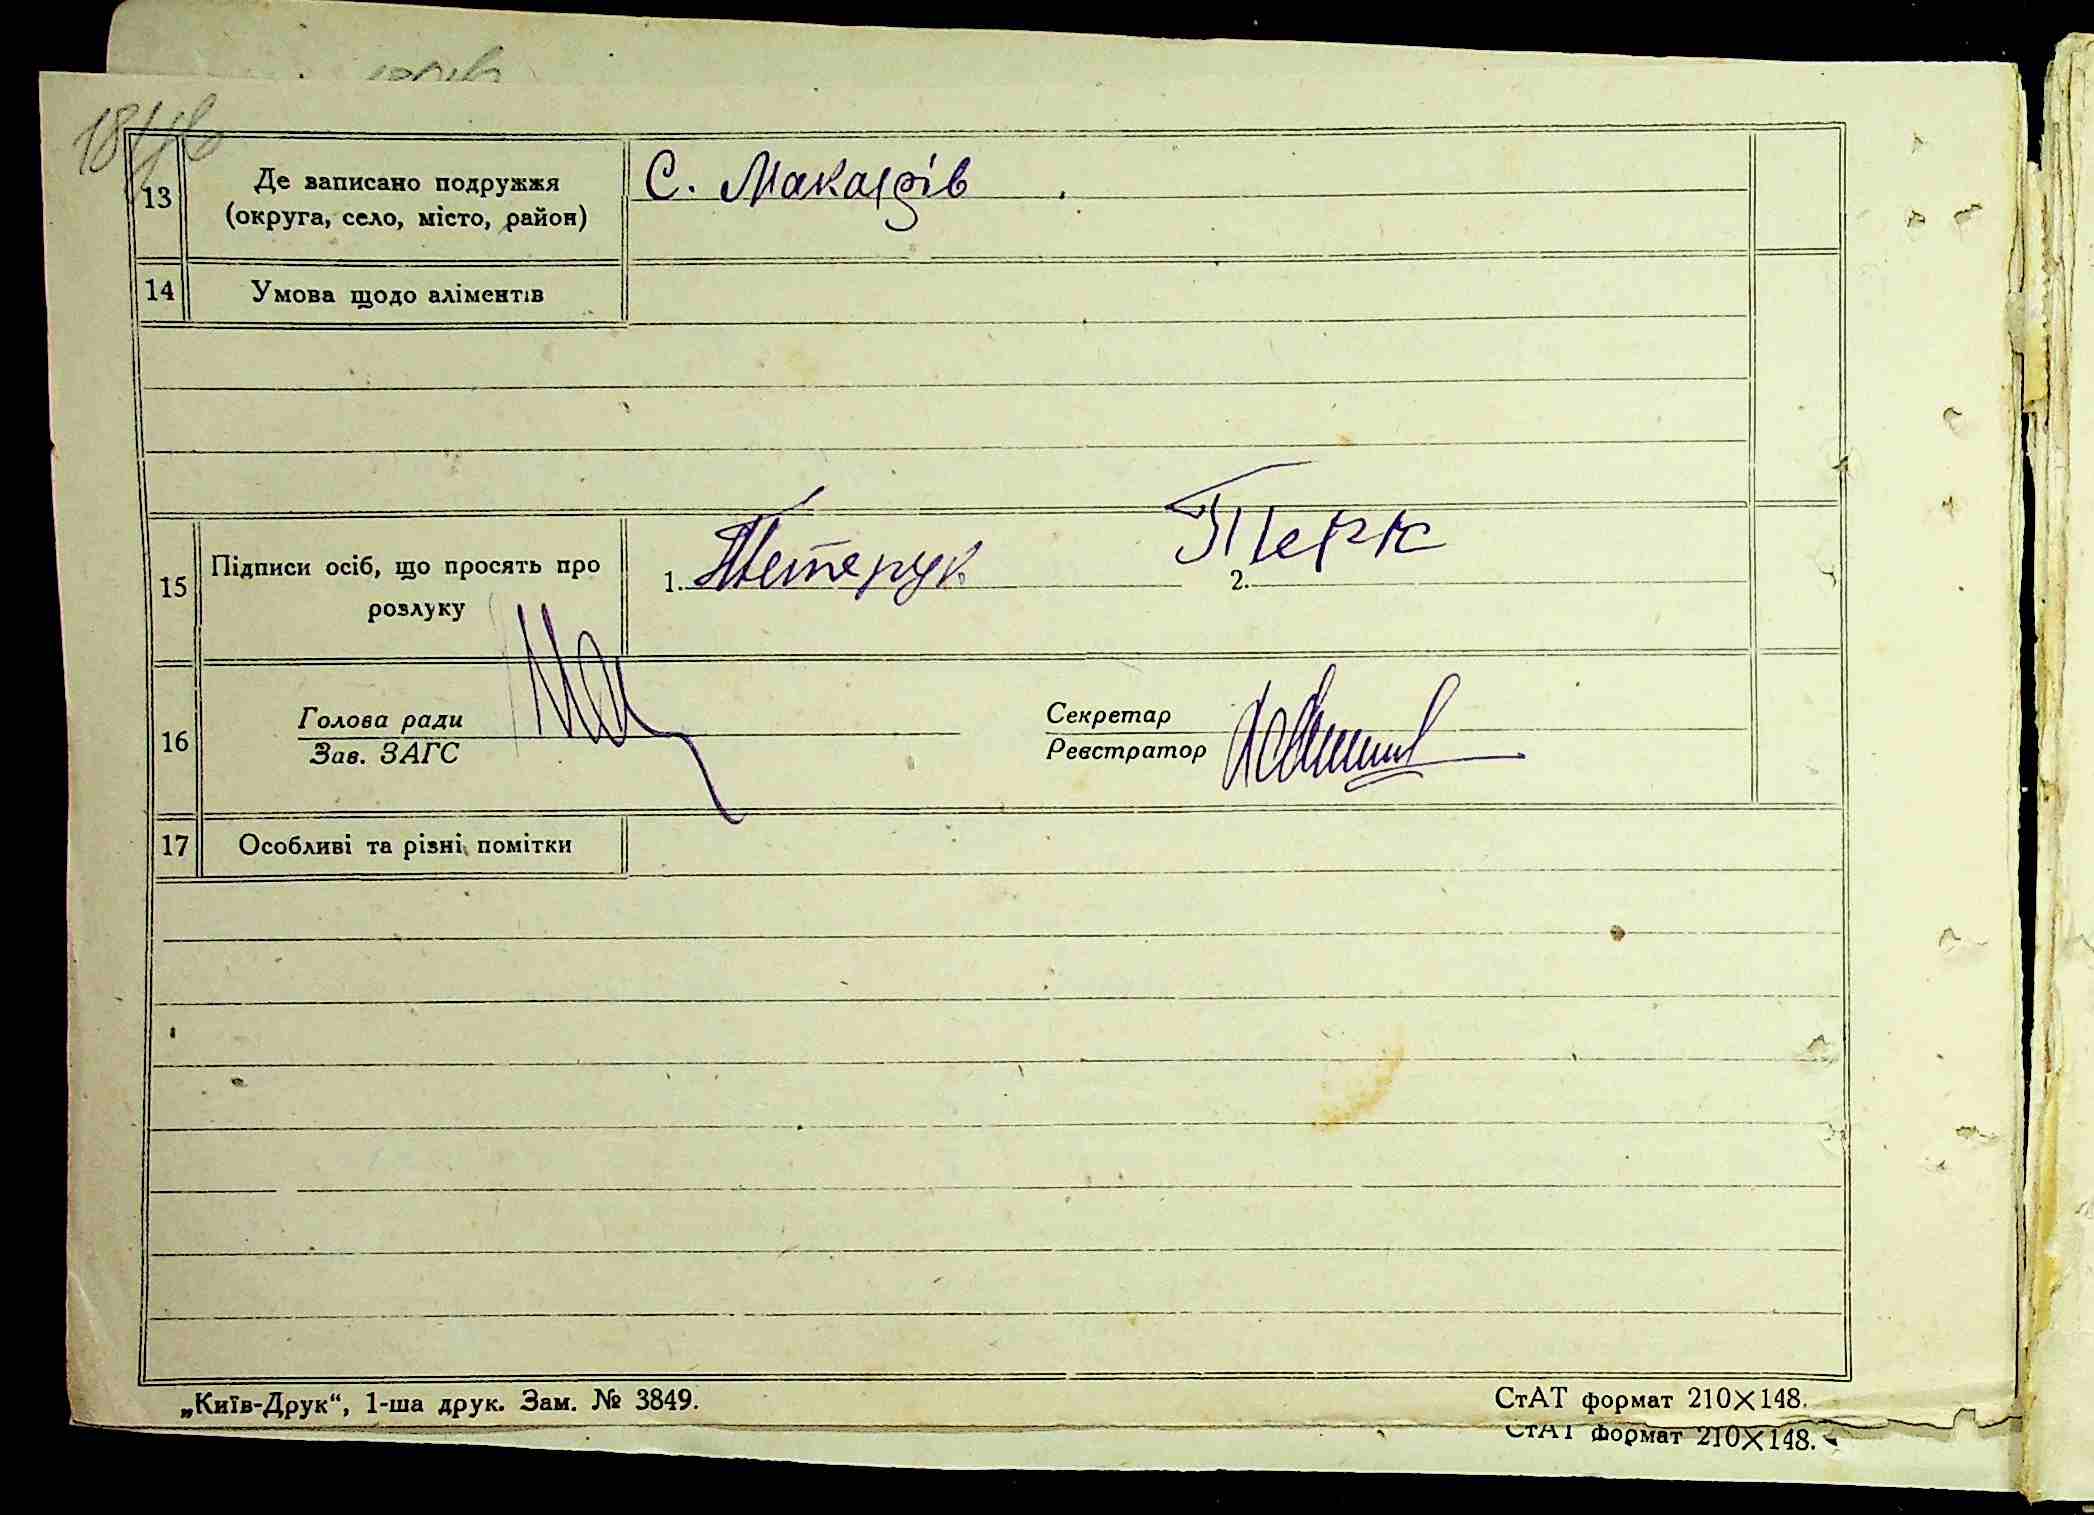 13
Де записано подружжя
(округа, село, місто, район)
С. Макарів
14
Умова щодо аліментів
15
Підписи осіб, що просять про
розлуку
1. Тетерук
2.
16
Голова ради
Зав. ЗАГС
Секретар
Реєстратор
17
Особливі та різні помітки
„Київ-Друк“, 1-ша друк. Зам. № 3849.
СтАТ формат 210×148.
СтАТ формат 210×148.